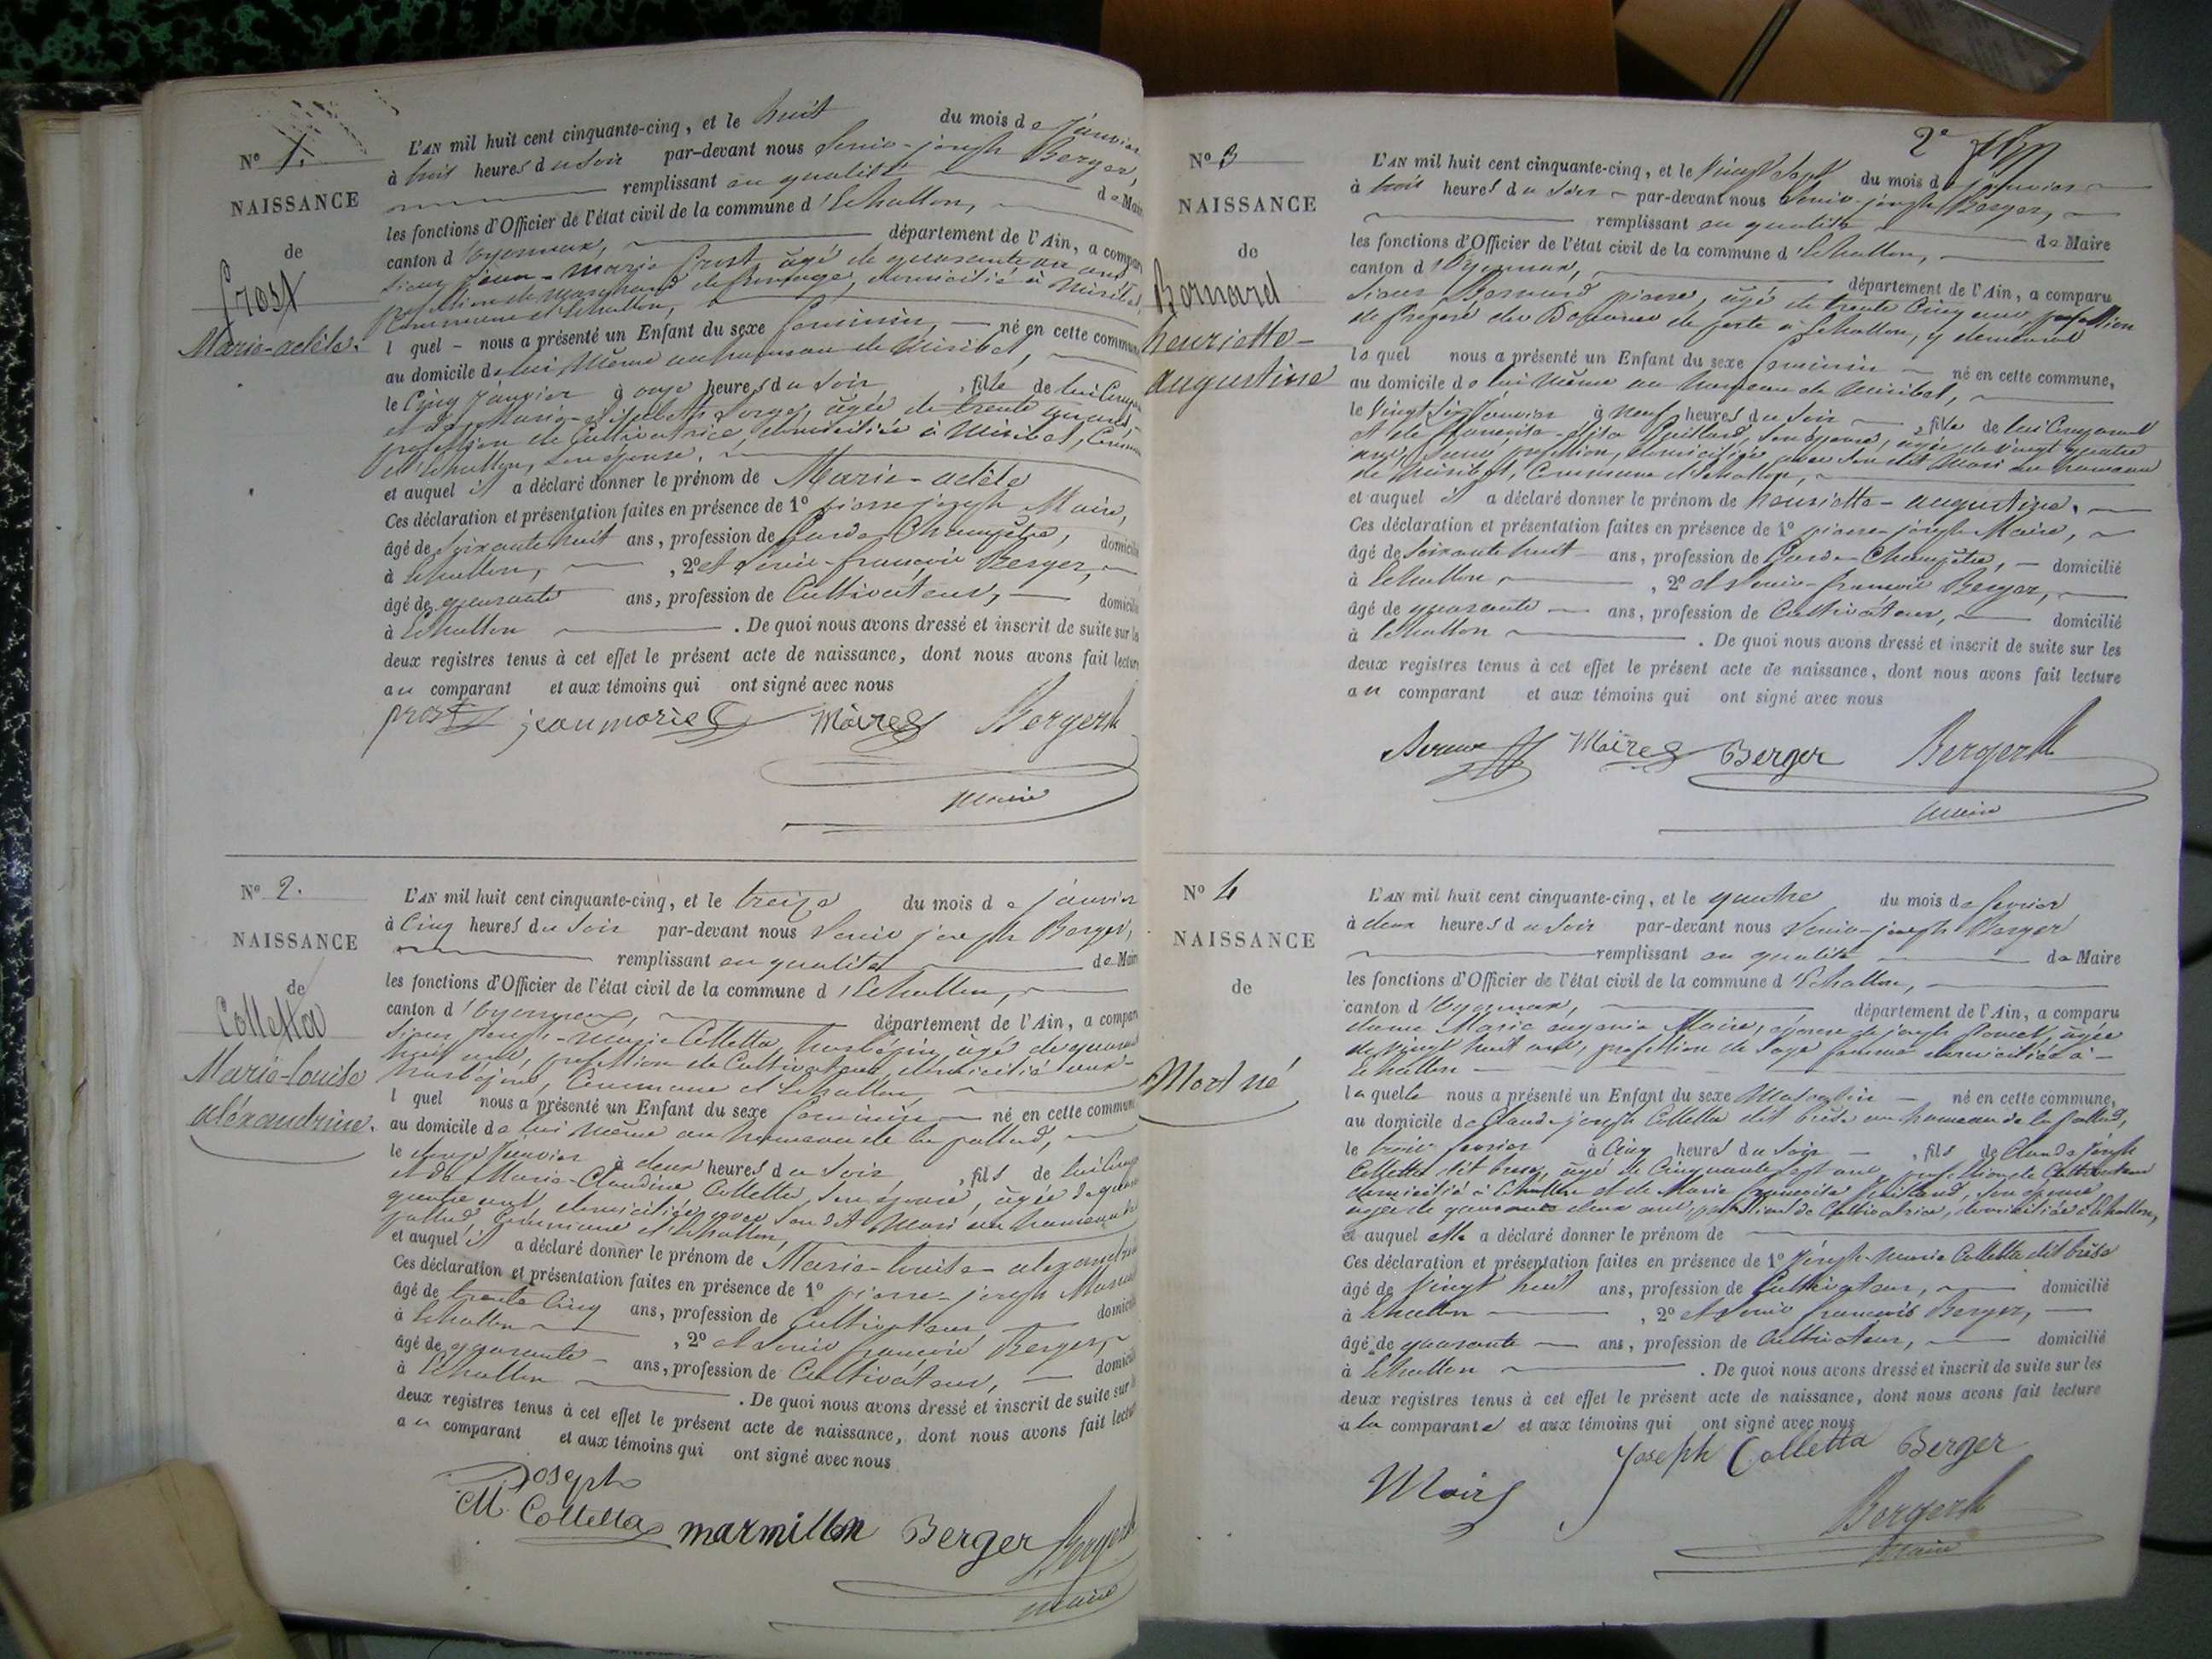 N° 1.
NAISSANCE
de
Prost
Marie-adèle.
L'AN mil huit cent cinquante-cinq, et le huit du mois de janvier
à trois heures du soir par-devant nous Louis-joseph Berger,
remplissant en qualité de Maire
les fonctions d'Officier de l'état civil de la commune d'Echallon,
canton d'Oyonnax, département de l'Ain, a compar
sieur Jean-marie Prost, âgé de quarante un ans
profession de marchand de fromage, domicilié à Miribel,
Commune d'Echallon,
l quel - nous a présenté un Enfant du sexe féminin, né en cette commune
au domicile de lui même au hameau de Miribel,
le Cinq janvier à onze heures du soir, fille de lui Compar
et de Marie-Elisabeth âgée de trente ans,
profession de Cultivatrice, domiciliée à Miribel, Commu
d'Echallon, son épouse.
et auquel il a déclaré donner le prénom de Marie-adèle
Ces déclaration et présentation faites en présence de 1° pierre joseph Maire,
âgé de soixante huit ans, profession de Garde Champêtre, domicilié
à Echallon, , 2° et Louis-françois Berger,
âgé de quarante ans, profession de Cultivateur, domicilié
à Echallon . De quoi nous avons dressé et inscrit de suite sur les
deux registres tenus à cet effet le présent acte de naissance, dont nous avons fait lecture
au comparant et aux témoins qui ont signé avec nous
prost jean marie Maire Berger
Maire
N° 2.
NAISSANCE
de
Colletta
Marie-louise
aléxandrine.
L'AN mil huit cent cinquante-cinq, et le treize du mois de janvier
à Cinq heures du soir par-devant nous Louis joseph Berger,
remplissant en qualité de Maire
les fonctions d'Officier de l'état civil de la commune d'Echallon,
canton d'Oyonnax, département de l'Ain, a compar
sieur Joseph-marie Colletta âgé de quarante
ans, profession de Cultivateur, domicilié
Commune d'Echallon,
l quel nous a présenté un Enfant du sexe féminin né en cette commune
au domicile de lui même au hameau de la pallud,
le douze janvier à deux heures du soir, fils de lui Comp
et de Marie-Claudine Colletta, son épouse, âgée de quarante
quatre ans domiciliée avec son dit Mari au hameau de
pallud, Commune d'Echallon,
et auquel il a déclaré donner le prénom de Marie-louise-alexandrine
Ces déclaration et présentation faites en présence de 1° pierre-joseph
âgé de trente Cinq ans, profession de Cultivateur domicilié
à Echallon, 2° et Louis françois Berger,
âgé de quarante ans, profession de Cultivateur, domicilié
à Echallon . De quoi nous avons dressé et inscrit de suite sur
deux registres tenus à cet effet le présent acte de naissance, dont nous avons fait lecture
au comparant et aux témoins qui ont signé avec nous
Joseph
M Colletta marmillon Berger Berger
maire
2e
N° 3
NAISSANCE
de
Bernard
henriette-
augustine
L'AN mil huit cent cinquante-cinq, et le Vingt Sept du mois de janvier
à trois heures du soir par-devant nous Louis-joseph Berger,
remplissant en qualité de Maire
les fonctions d'Officier de l'état civil de la commune d'Echallon,
canton d'Oyonnax, département de l'Ain, a comparu
sieur Bernard pierre, âgé de trente Cinq ans, profession
de préposé des Douanes de poste à Echallon, y demeurant
lequel nous a présenté un Enfant du sexe féminin né en cette commune,
au domicile de lui même au hameau de Miribel,
le Vingt Six Janvier à Neuf heures du soir, fille de lui Comparant
et de françoise-élisa Guilland, son épouse, âgée de vingt quatre
ans, sans profession, domiciliée avec son dit Mari au hameau
de Miribel, Commune d'Echallon,
et auquel il a déclaré donner le prénom de henriette-augustine.
Ces déclaration et présentation faites en présence de 1° pierre-joseph Maire,
âgé de soixante huit ans, profession de Garde Champêtre, domicilié
à Echallon, 2° et Louis-françois Berger,
âgé de quarante ans, profession de Cultivateur, domicilié
à Echallon . De quoi nous avons dressé et inscrit de suite sur les
deux registres tenus à cet effet le présent acte de naissance, dont nous avons fait lecture
au comparant et aux témoins qui ont signé avec nous
Maire Berger Berger
Maire
N° 4
NAISSANCE
de
Mort né
L'AN mil huit cent cinquante-cinq, et le quatre du mois de fevrier
à deux heures du soir par-devant nous Louis-joseph Berger
remplissant en qualité de Maire
les fonctions d'Officier de l'état civil de la commune d'Echallon,
canton d'Oyonnax, département de l'Ain, a comparu
dame Marie eugenie Maire, épouse de joseph âgée
de vingt huit ans, profession de Sage femme domiciliée à
Echallon
laquelle nous a présenté un Enfant du sexe Masculin né en cette commune,
au domicile de Claude joseph Colletta dit au hameau de la pallud,
le trois fevrier à Cinq heures du soir, fils de Claude Joseph
Colletta dit âgé de Cinquante sept ans profession de Cultivateur
domicilié à Echallon et de Marie françoise Guilland, son épouse
âgée de quarante deux ans, profession de Cultivatrice, domiciliée à Echallon,
et auquel elle a déclaré donner le prénom de
Ces déclaration et présentation faites en présence de 1° Joseph-Marie Colletta dit
âgé de Vingt huit ans, profession de Cultivateur, domicilié
à Echallon, 2° et Louis françois Berger,
âgé de quarante ans, profession de Cultivateur, domicilié
à Echallon . De quoi nous avons dressé et inscrit de suite sur les
deux registres tenus à cet effet le présent acte de naissance, dont nous avons fait lecture
à la comparante et aux témoins qui ont signé avec nous
Maire Joseph Colletta Berger
Berger
Maire